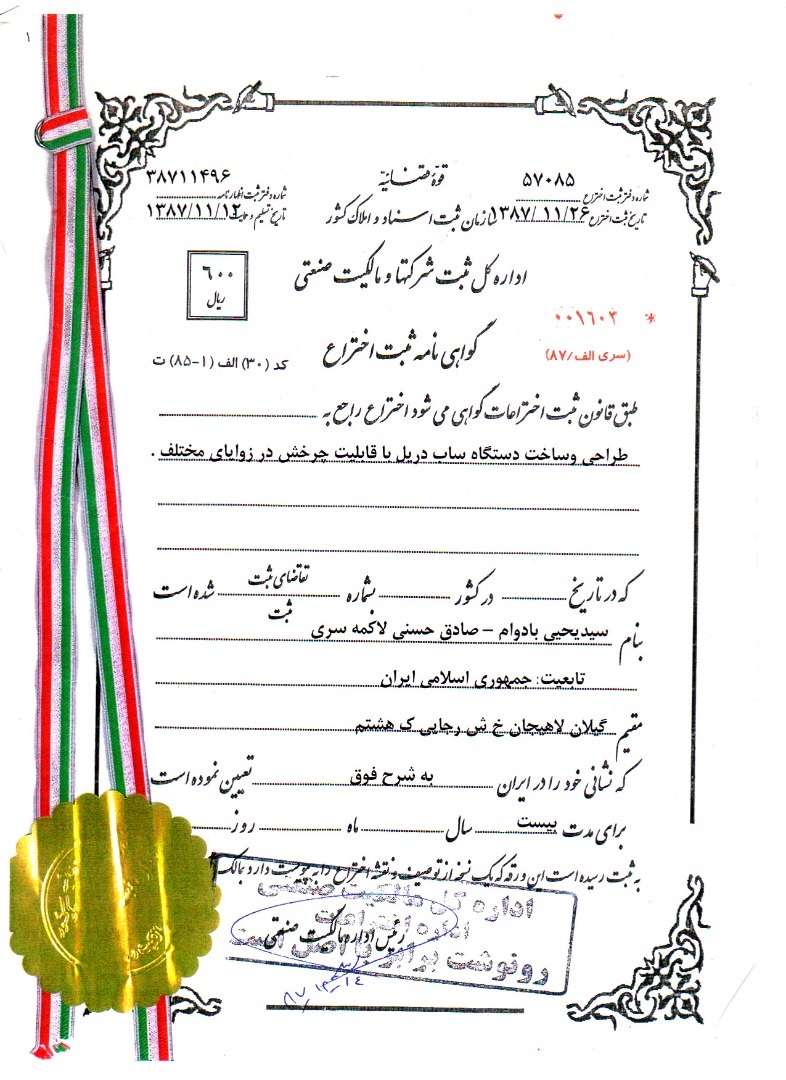 ۱
۳۸۷۱۱۴۹۶ قوّه قضائیّه ۵۷۰۸۵
شماره دفتر ثبت اظهارنامه شماره دفتر ثبت اختراع
تاریخ تسلیم و ۱۳۸۷/۱۱/۱۲ سازمان ثبت اسناد و املاک کشور تاریخ ثبت اختراع ۱۳۸۷/۱۱/۲۶
اداره کل ثبت شرکتها و مالکیت صنعتی
۶۰۰
ریال
* ۰۰۱۶۰۲
(سری الف/۸۷)
گواهی نامه ثبت اختراع
کد (۳۰) الف (۱-۸۵) ت
طبق قانون ثبت اختراعات گواهی می شود اختراع راجع به
طراحی وساخت دستگاه ساب دریل با قابلیت چرخش در زوایای مختلف .
که در تاریخ در کشور بشماره تقاضای ثبت شده است
ثبت
بنام سیدیحیی بادوام – صادق حسنی لاکمه سری
تابعیت: جمهوری اسلامی ایران
مقیم گیلان لاهیجان خ ش رجایی ک هشتم
که نشانی خود را در ایران به شرح فوق تعیین نموده است
برای مدت بیست سال ماه روز
به ثبت رسیده است این ورقه که یک نسخه از توصیف و نقشه اختراع را به پیوست دارد بمالک
اداره کل مالکیت صنعتی
اداره اختراعات
رئیس اداره مالکیت صنعتی
رونوشت برابر با اصل است